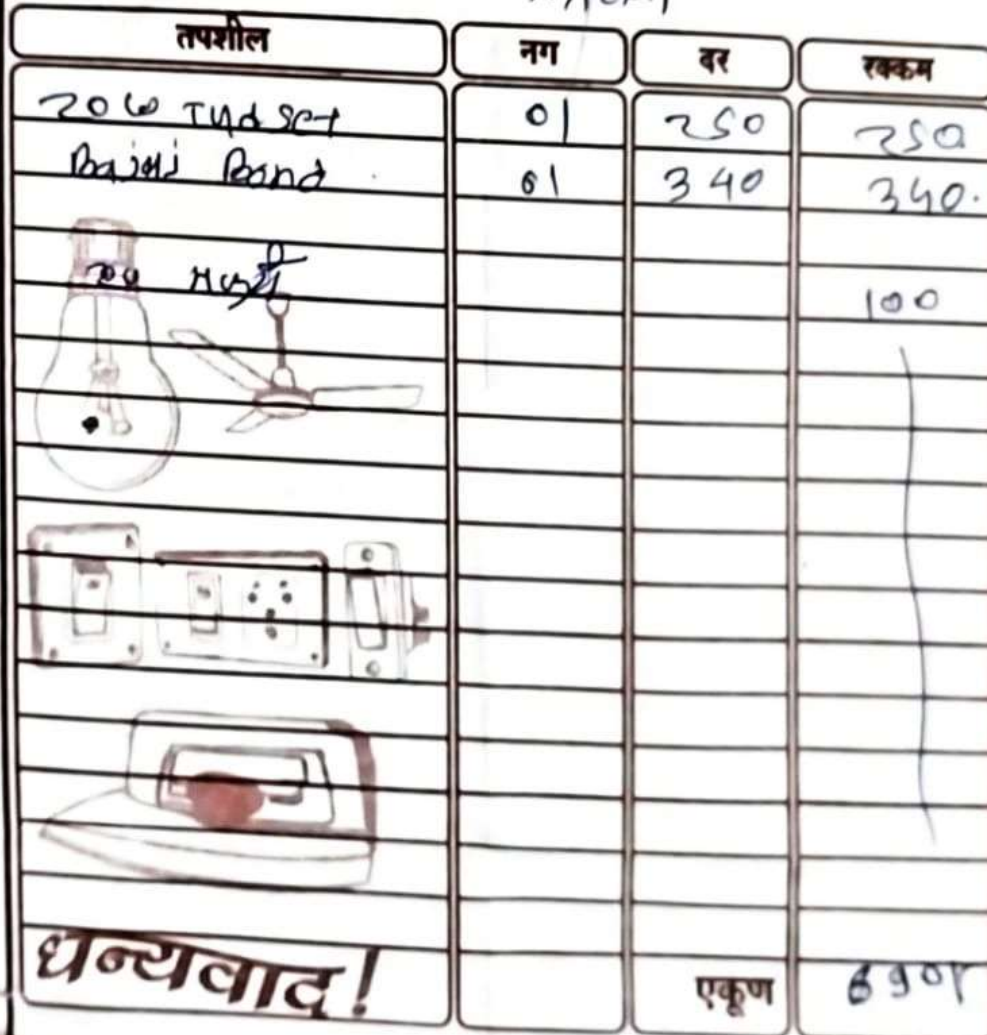 तपशील नग दर रक्कम
20 W Tud set 01 250 250
Bajaj Band 01 340 340.
मजुरी 100
धन्यवाद! एकूण 690/-